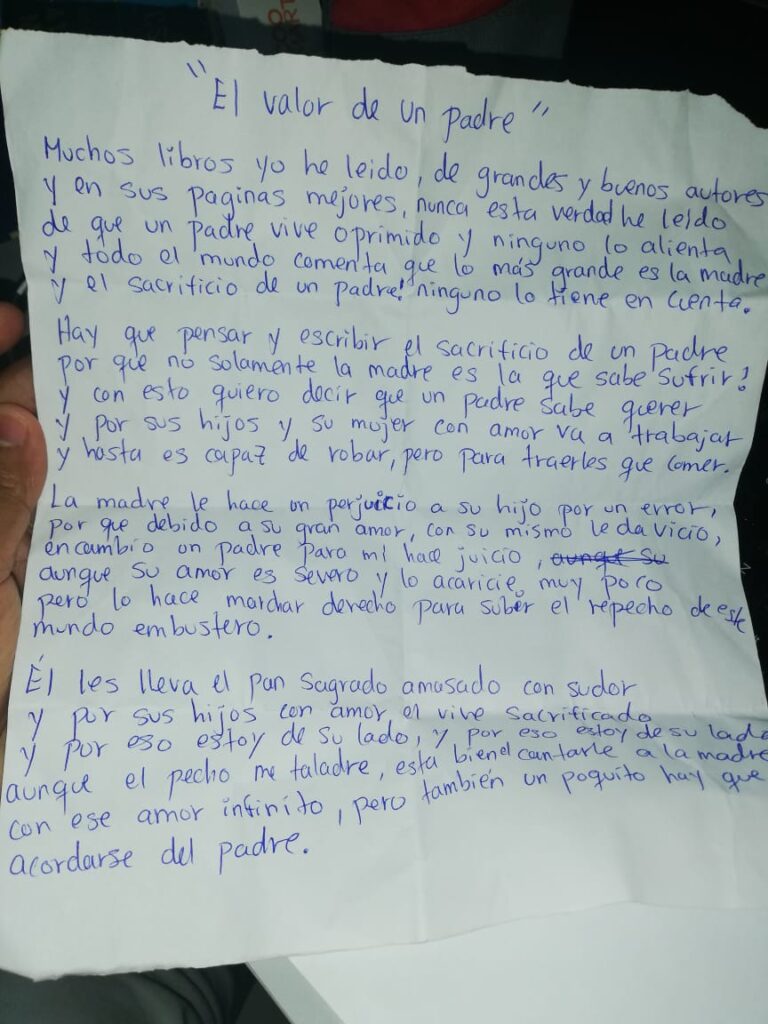 "El valor de un padre"
Muchos libros yo he leido, de grandes y buenos autores
y en sus paginas mejores, nunca esta verdad he leido
de que un padre vive oprimido y ninguno lo alienta
y todo el mundo comenta que lo más grande es la madre
y el sacrificio de un padre! ninguno lo tiene en cuenta.
Hay que pensar y escribir el sacrificio de un padre
por que no solamente la madre es la que sabe sufrir!
y con esto quiero decir que un padre sabe querer
y por sus hijos y su mujer con amor va a trabajar
y hasta es capaz de robar, pero para traerles que comer.
La madre le hace un perjuicio a su hijo por un error,
por que debido a su gran amor, con su mismo le da vicio,
en cambio un padre para mi hace juicio, aunque su
aunque su amor es severo y lo acaricie muy poco
pero lo hace marchar derecho para subir el repecho de este
mundo embustero.
Él les lleva el pan sagrado amasado con sudor
y por sus hijos con amor el vive sacrificado
y por eso estoy de su lado, y por eso estoy de su lado
aunque el pecho me taladre, esta bien el cantarle a la madre
con ese amor infinito, pero también un poquito hay que
acordarse del padre.